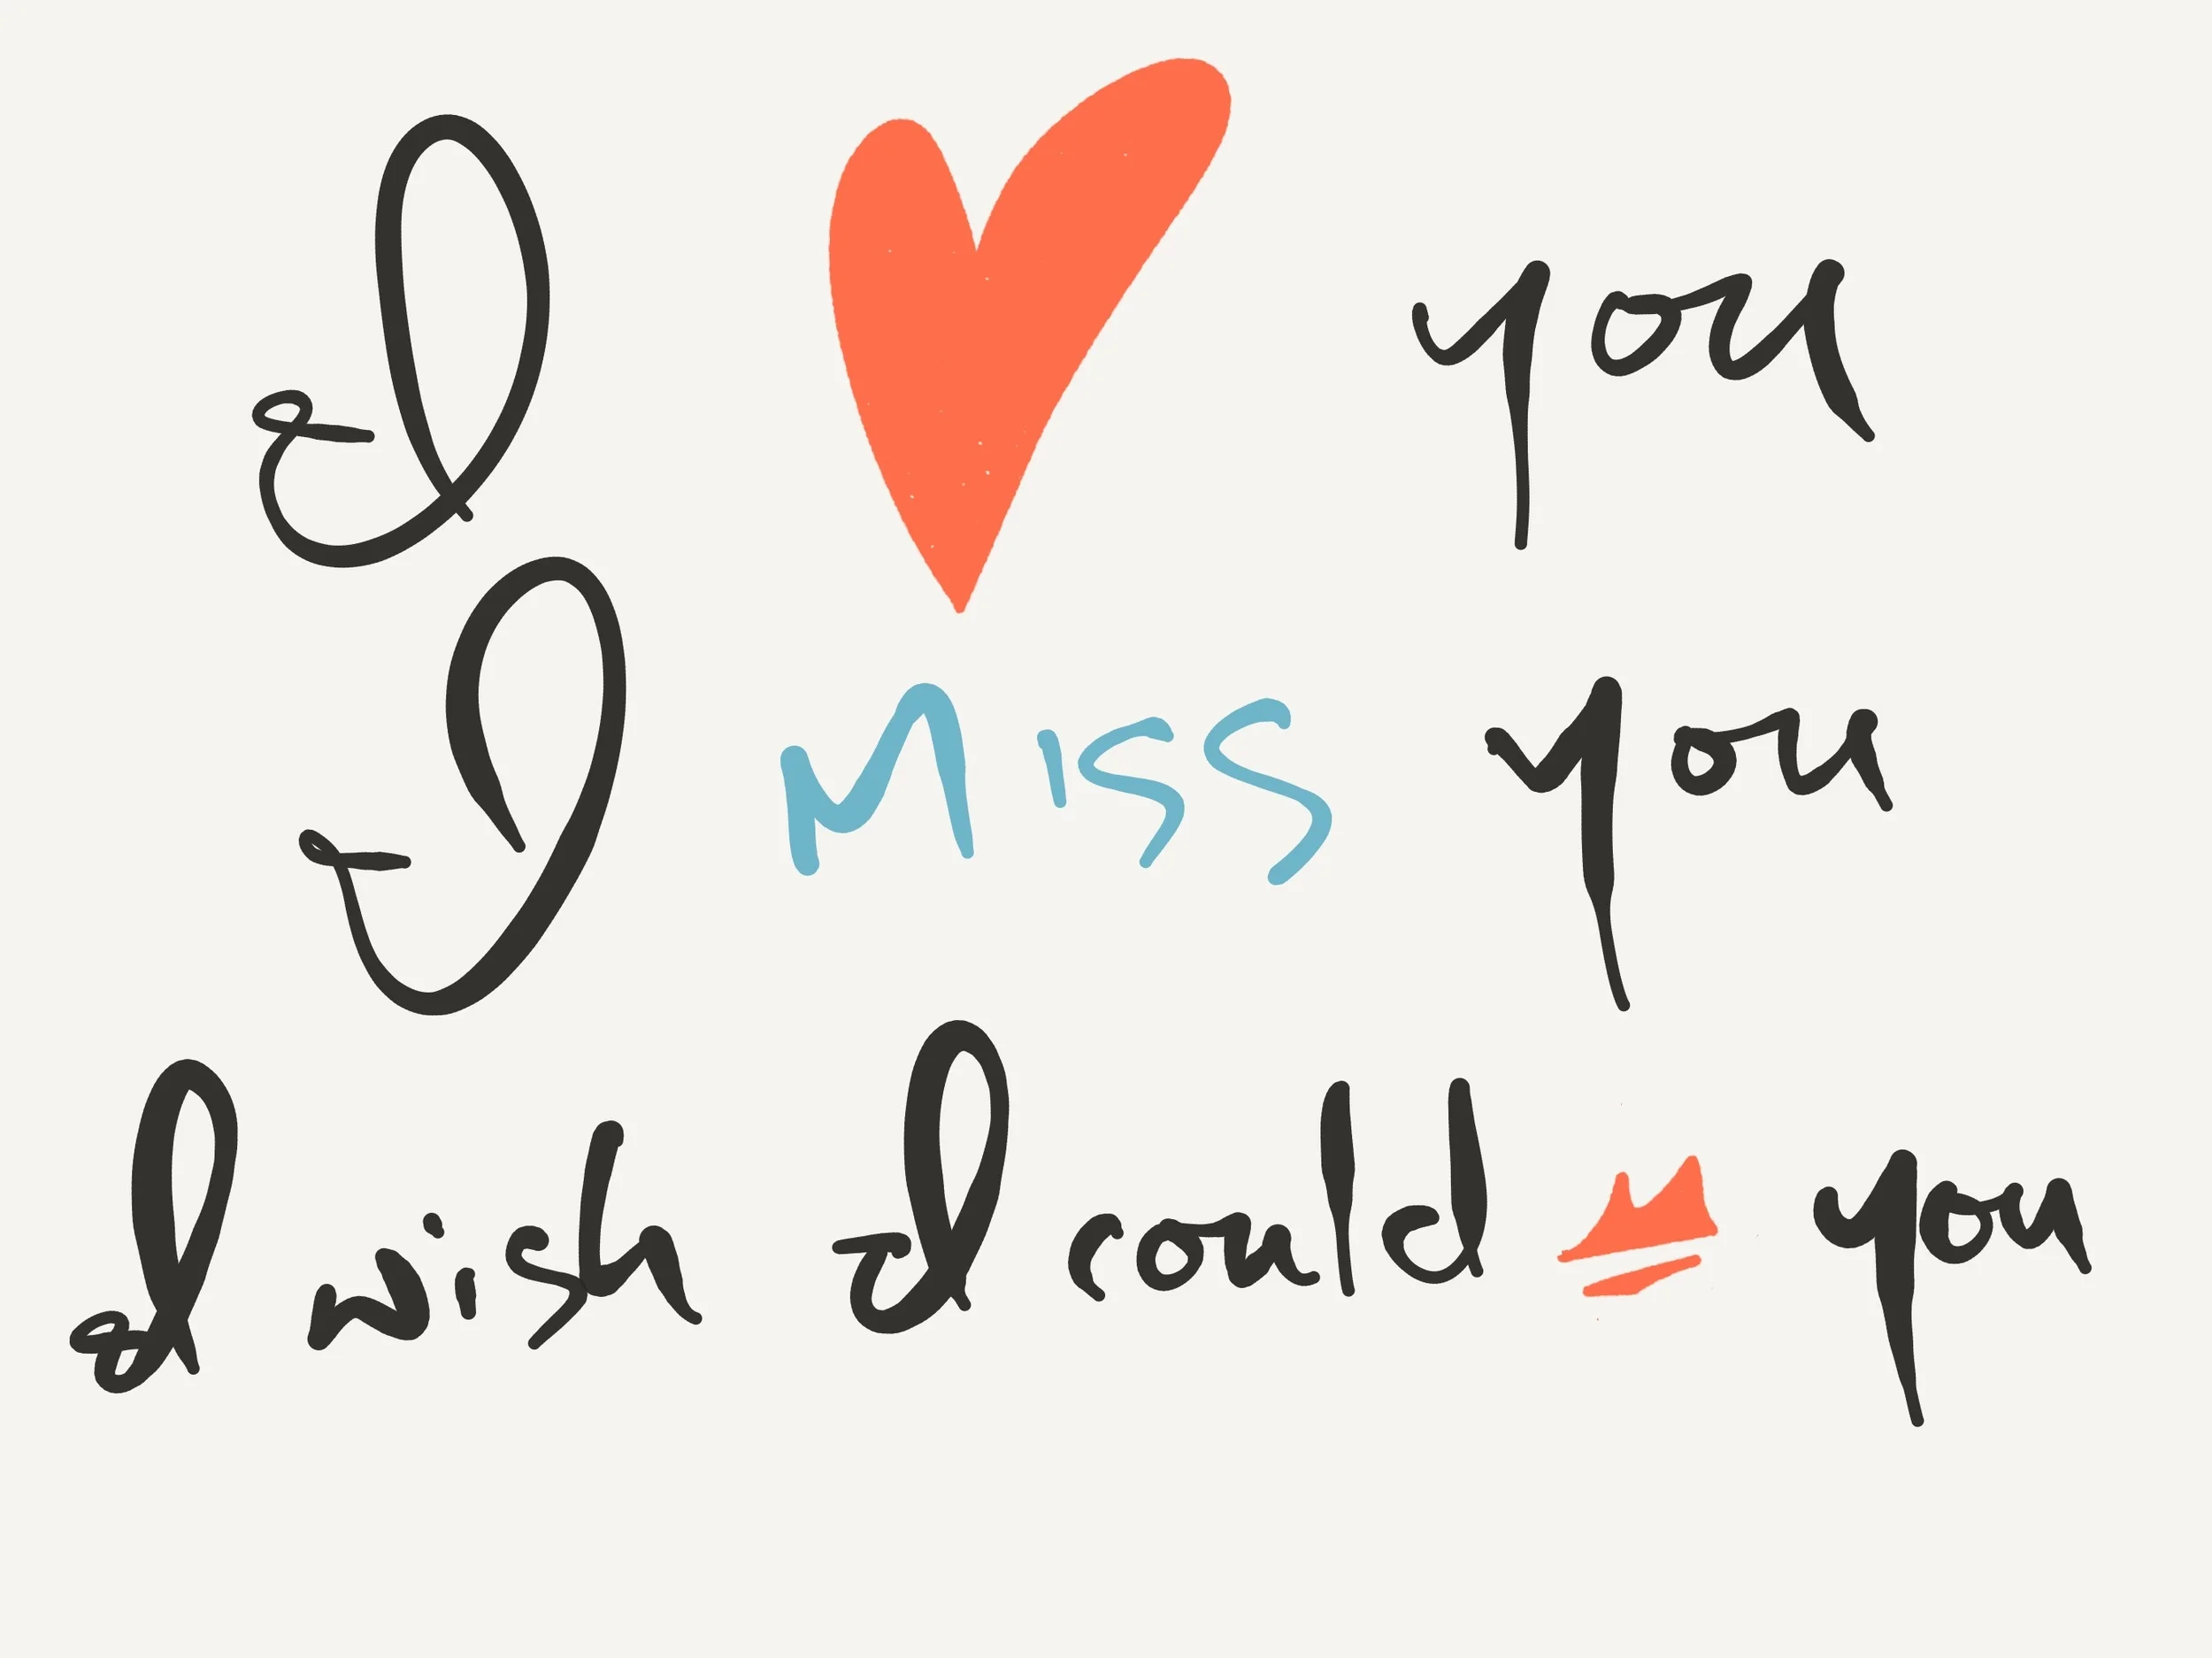 I ❤ you
I Miss you
I wish I could 💋 you